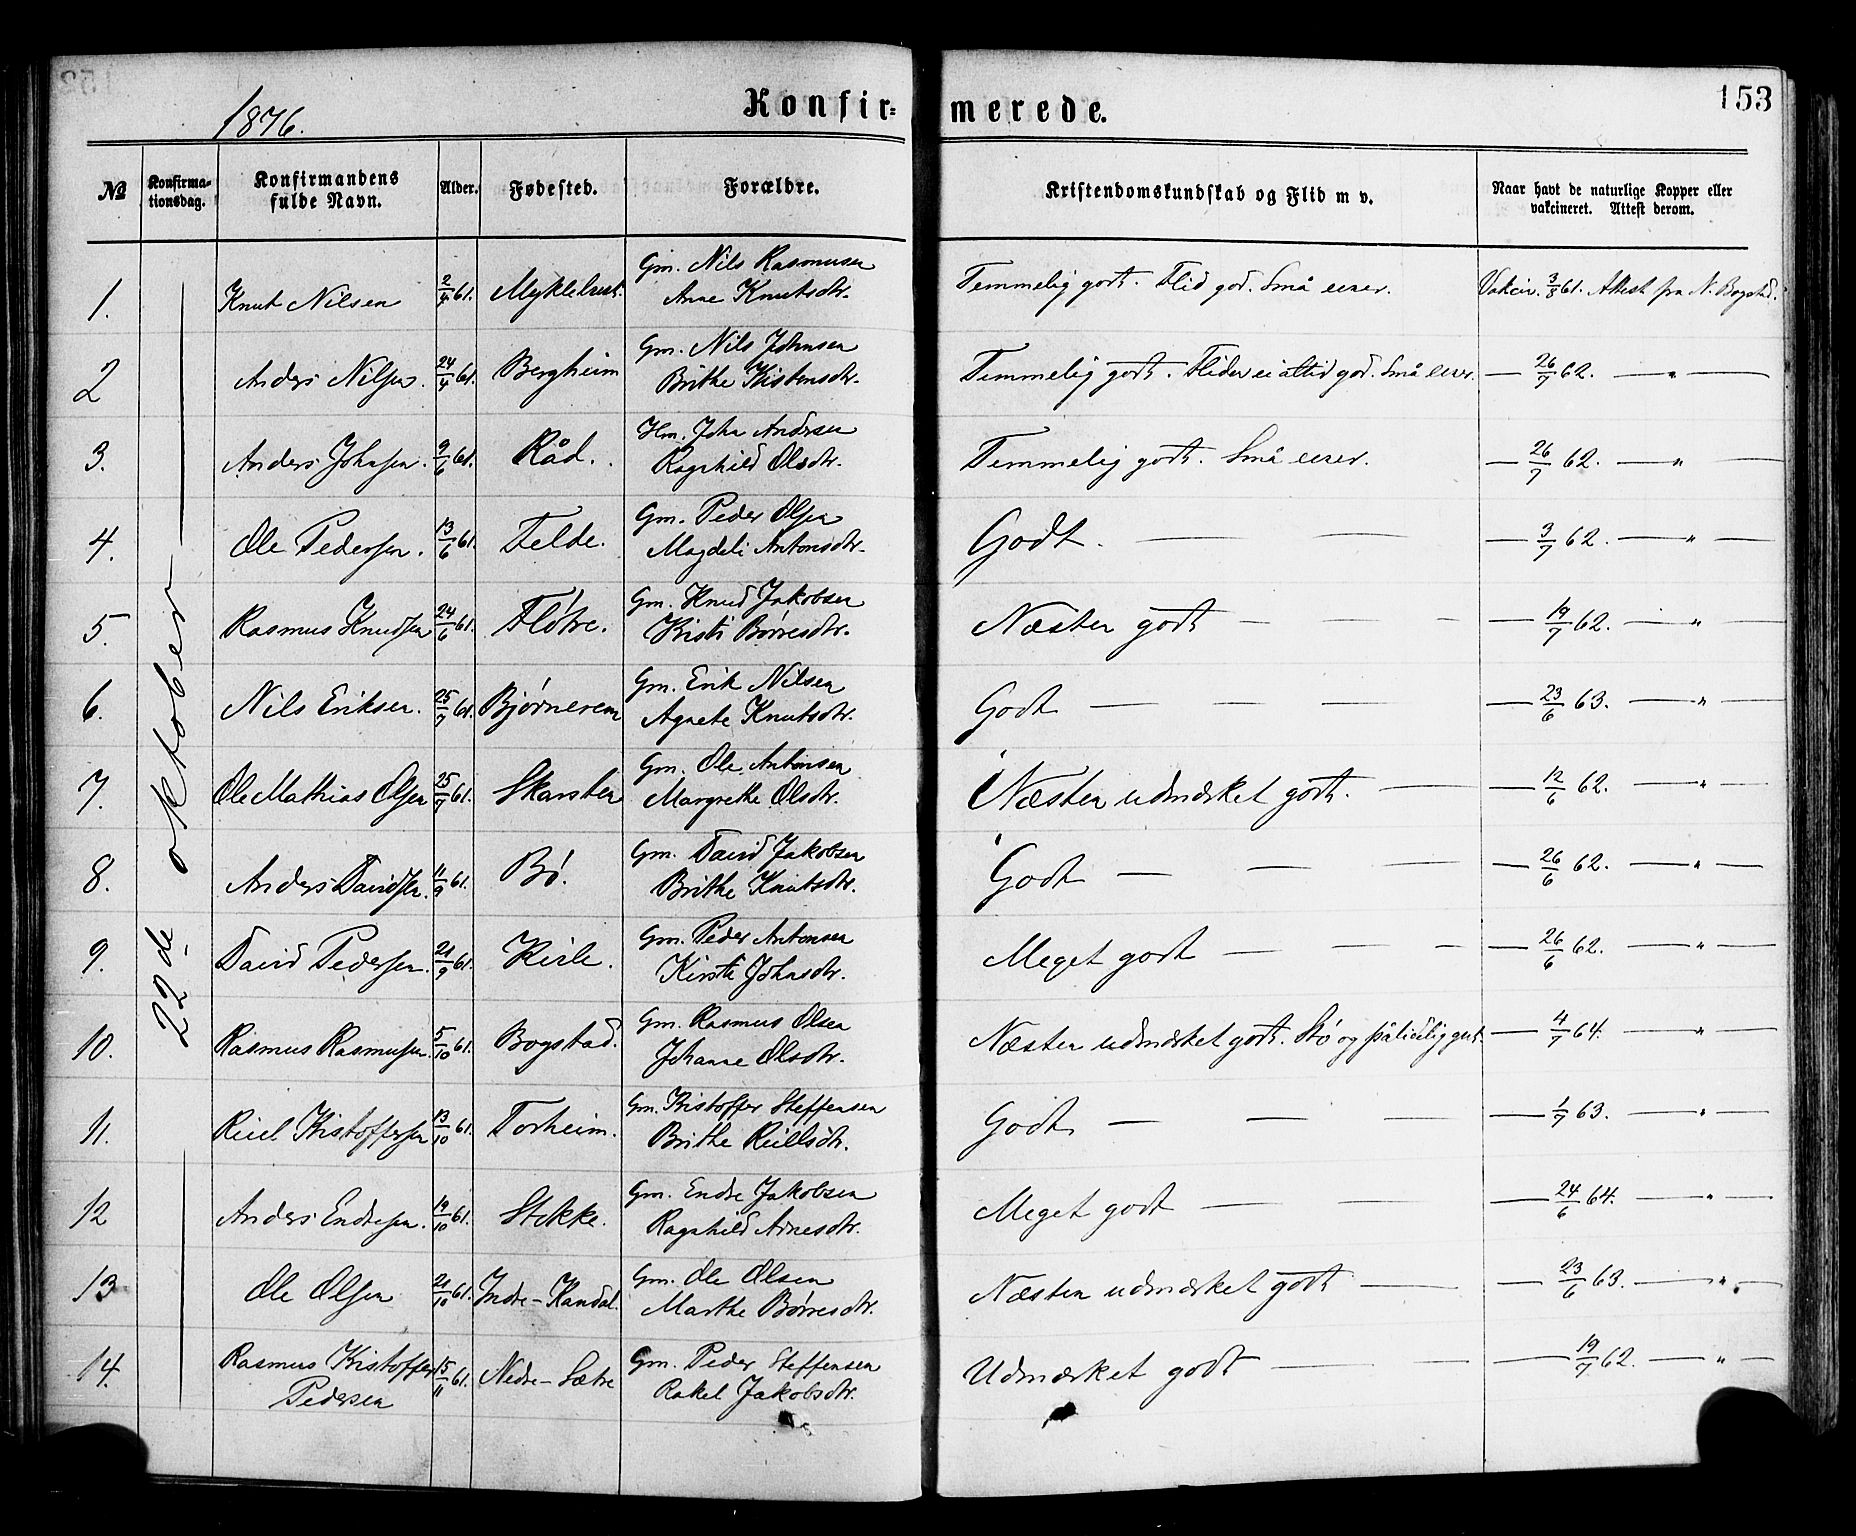 153
1876.
Konfir=
merede.
No
Konfirma-
tionsdag.
Konfirmandens
fulde Navn.
Alder.
Fødested.
Forældre.
Kristendomskundskab og Flid m v.
Naar havt de naturlige Kopper eller
vakcineret. Attest derom.
22de oktober
1. Knut Nilsen 2/4 61. Myklebust. Gm. Nils Rasmusen
Anne Knutsdtr. Temmelig godt. Flid god. Små evner. Vakcin. 3/8 61. Attest fra N. Bogstad.
2 Anders Nilsen. 24/4 61. Bergheim Gm. Nils Johnsen
Brithe Kistensdtr. Temmelig godt. Fliden ei altid god. Små evner. — 26/7 62. — " —
3. Anders Johnsen. 9/6 61. Råd. Hm. John Andersen
Ragnhild Olsdtr. Temmelig godt. Små evner. — 26/7 62. — " —
4. Ole Pedersen. 13/6 61. Felde. Gm. Peder Olsen
Magdeli Antonsdtr. Godt. — — 3/7 62. — " —
5. Rasmus Knudsen 24/6 61. Fløtre. Gm. Knud Jakobsen
Kisti Børresdtr. Næsten godt — — — 19/7 62. — " —
6. Nils Eriksen. 25/7 61. Bjørnerem Gm. Erik Nilsen
Agnete Knutsdtr. Godt — — — 23/6 63. — " —
7. Ole Mathias Olsen 25/7 61. Skarsten Gm. Ole Antonsen
Margrethe Olsdtr. Næsten udmærket godt. — — 12/6 62. — " —
8. Anders Davidsen. 11/9 61. Bø. Gm. David Jakobsen
Brithe Knutsdtr. Godt — — — 26/6 62. — " —
9. David Pedersen. 21/9 61. Kvile. Gm. Peder Antonsen
Kirsti Johnsdtr. Meget godt — — — 26/6 62. — " —
10. Rasmus Rasmusen. 5/10 61. Bogstad. Gm. Rasmus Olsen
Johanne Olsdtr. Næsten udmærket godt. Stø og pålidelig gut. — 4/7 64. — " —
11. Reiel Kistoffersen 13/10 61. Torheim. Gm. Kistoffer Steffensen
Brithe Reielsdtr. Godt — — — 1/7 63. — " —
12 Anders Endresen. 19/10 61. Stokke. Gm. Endre Jakobsen
Ragnhild Arnesdtr. Meget godt — — — 24/6 64. — " —
13 Ole Olsen 21/10 61. Indre-Kandal. Gm. Ole Olsen
Marthe Børresdtr. Næsten udmærket godt — — 23/6 63. — " —
14. Rasmus Kistoffer
Pedersen 15/11 61. Nedre-Sætre Gm. Peder Steffensen
Rakel Jakobsdtr. Udmærket godt — — 19/7 62. — " —